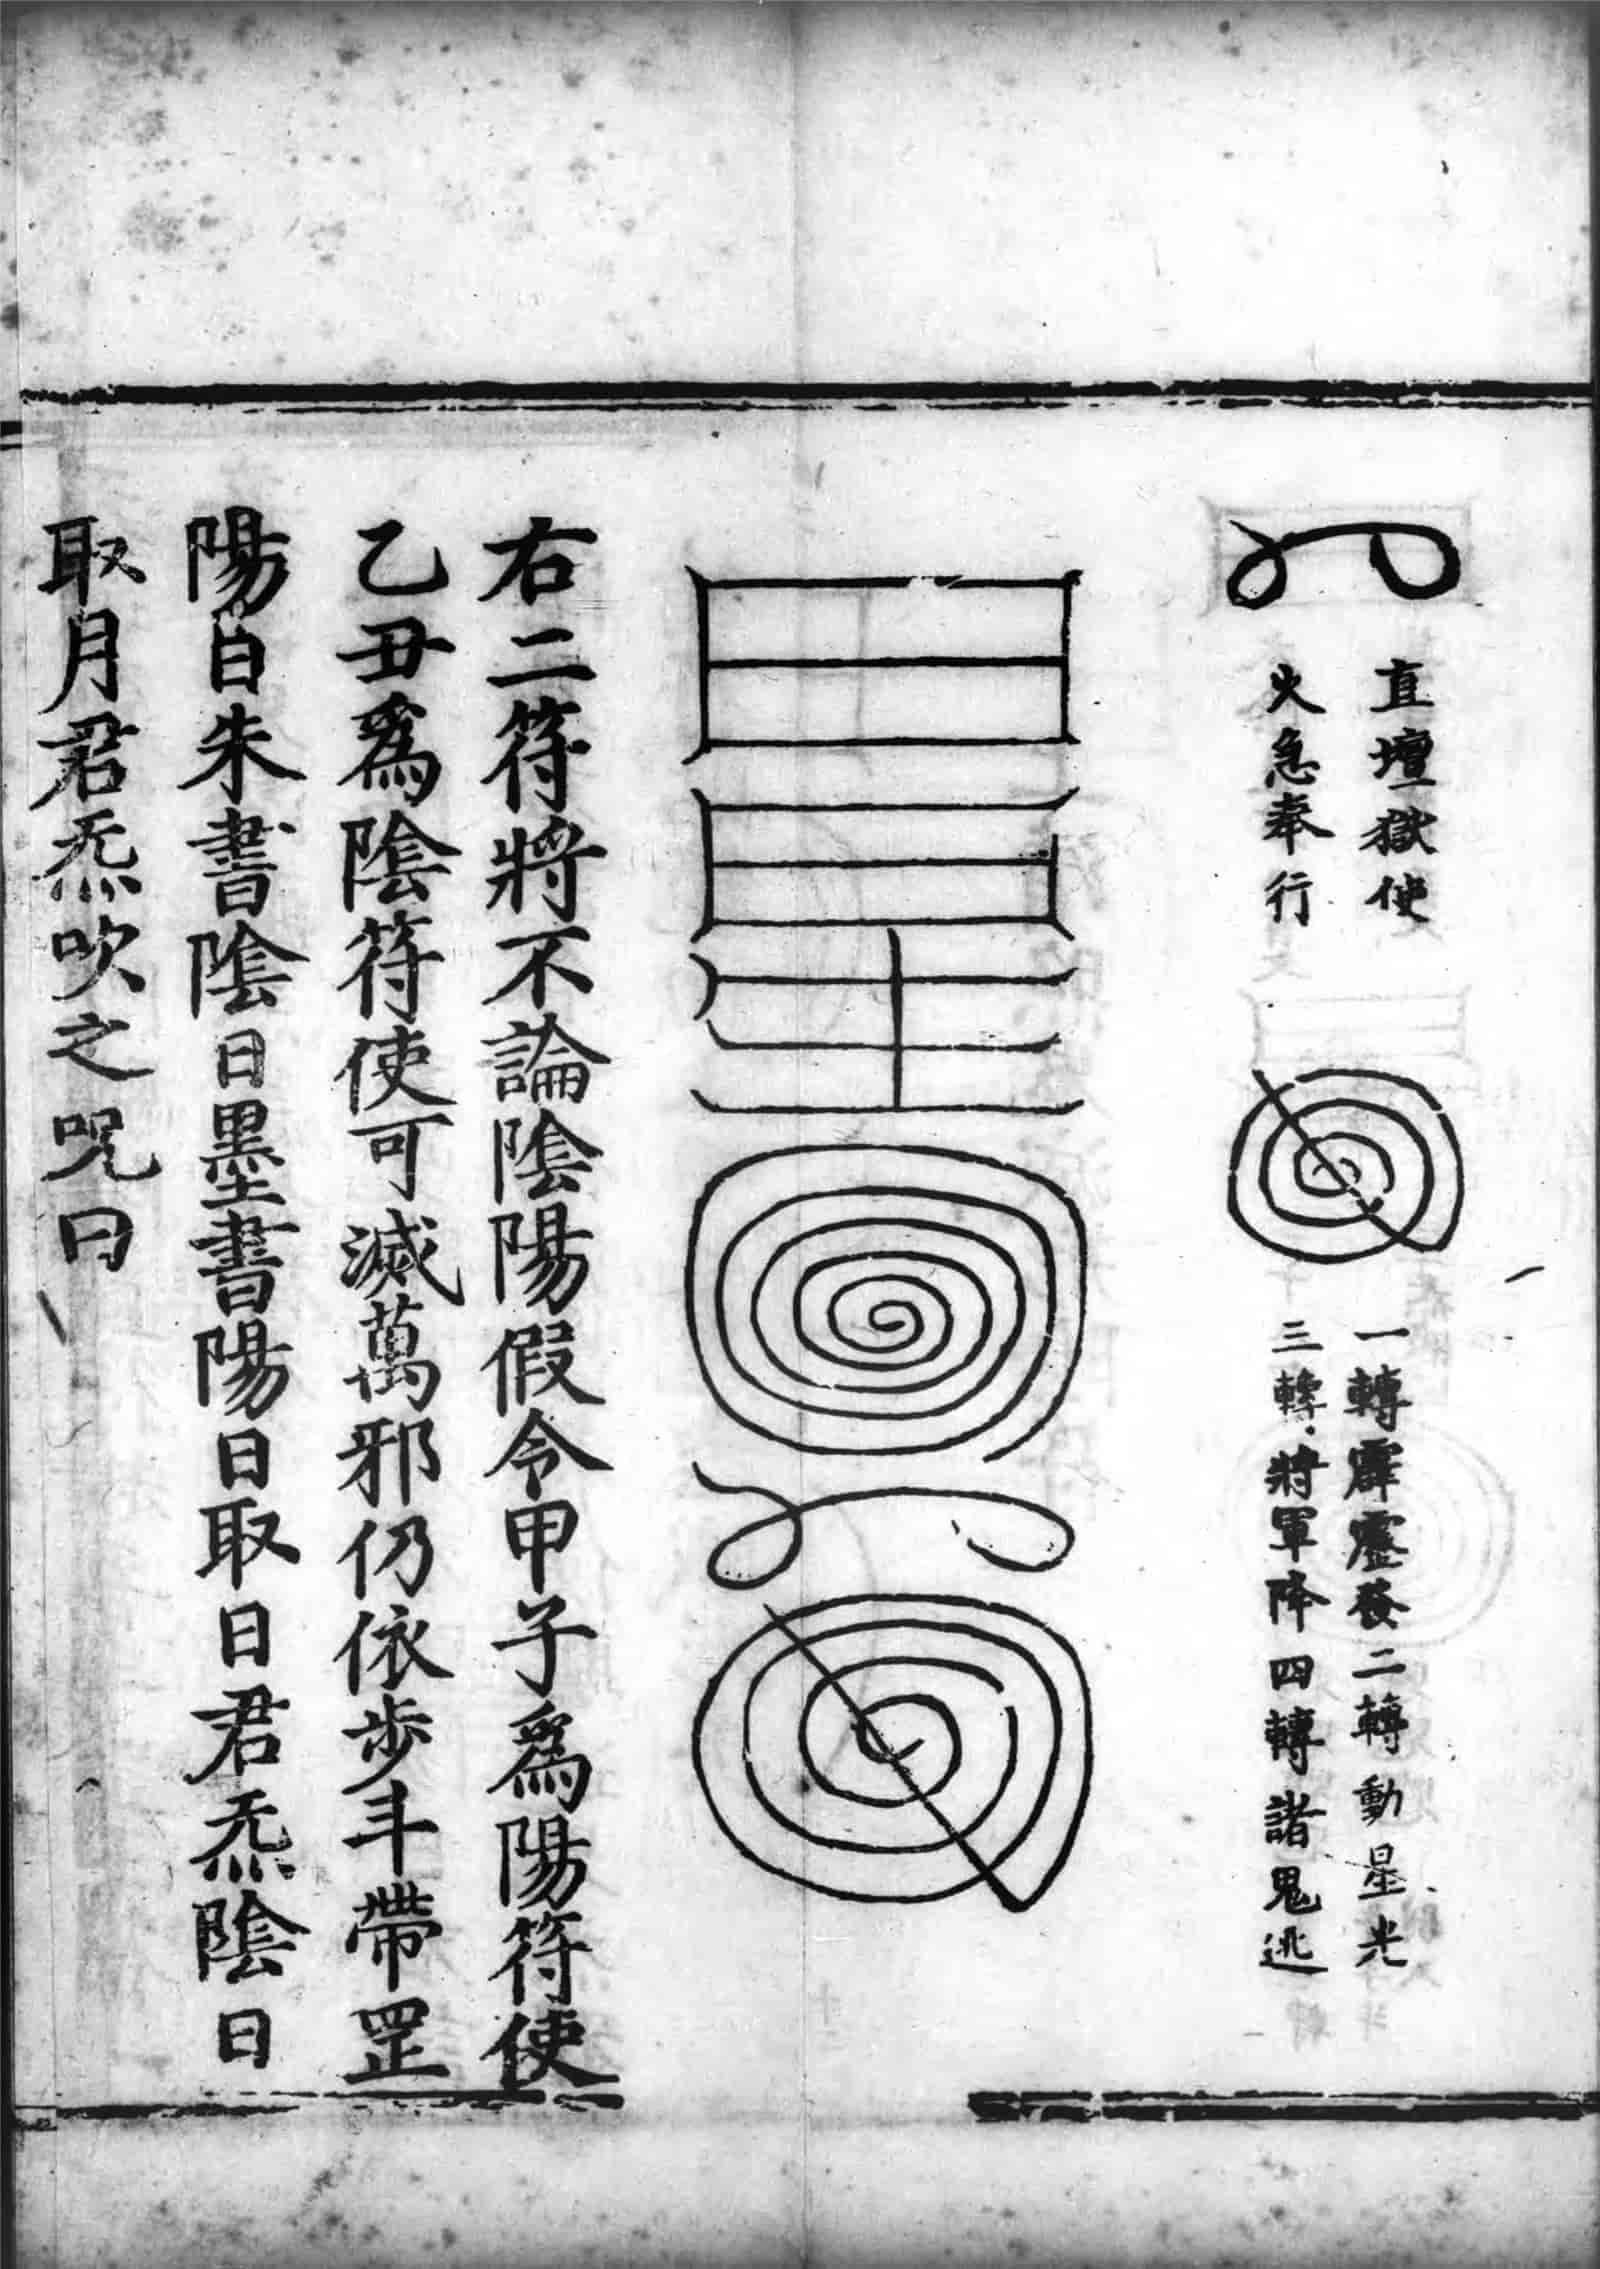 直壇獄使
火急奉行
一轉霹靂發二轉動星光
三轉將軍降四轉諸鬼逃
右二符將不論陰陽假令甲子爲陽符使
乙丑爲陰符使可滅萬邪仍依步斗帶罡
陽日朱書陰日墨書陽日取日君炁陰日
取月君炁吹之呪曰